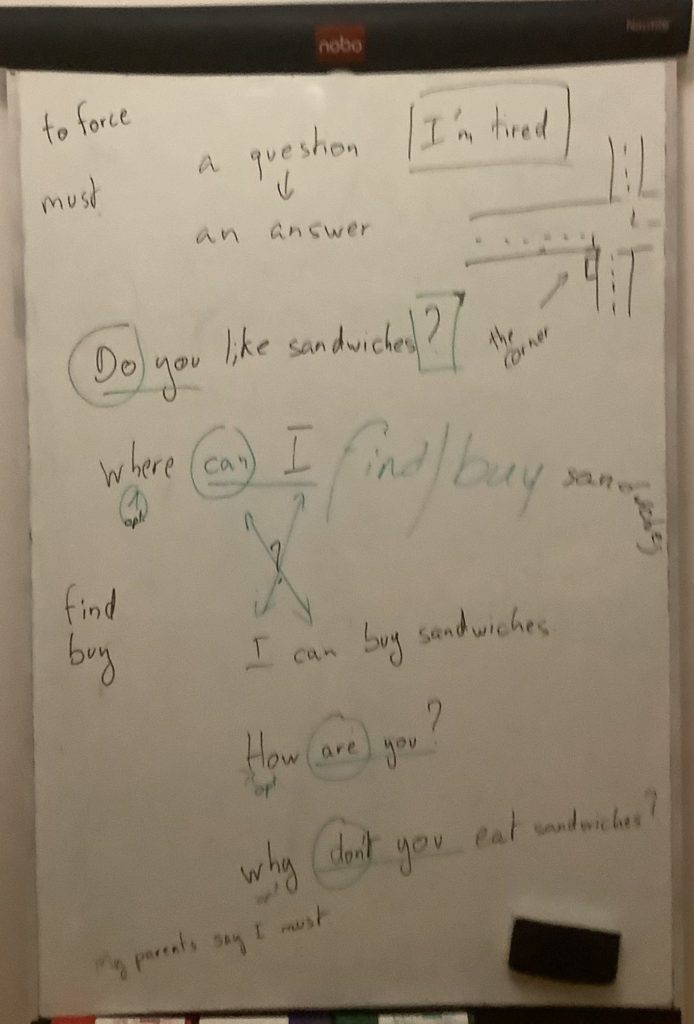 nobo
to force
must
a question
an answer
I'm tired
the corner
Do you like sandwiches?
where can I find/buy sandwiches
opt
?
find
buy
I can buy sandwiches
How are you?
opt
why don't you eat sandwiches?
My parents say I must